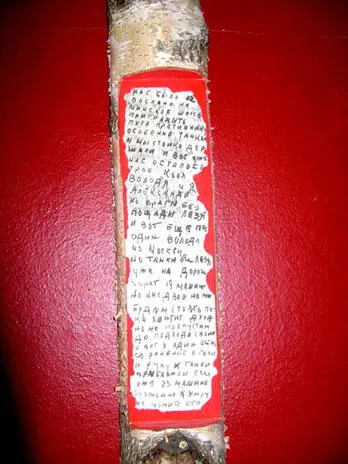 НАС БЫЛО 12
ПОСЛАНО НА
МИНСКОЕ ШОССЕ
ПРЕГРАДИТЬ
ПУТЬ ПРОТИВНИКУ
ОСОБЕННО ТАНКАМ
И МЫ СТОЙКО ДЕР
ЖАЛИ И ВОТ УЖЕ
НАС ОСТАЛОСЬ
ТРОЕ КОЛЯ
ВОЛОДЯ И Я
АЛЕКСАНДР
НО ВРАГИ БЕЗ
ПОЩАДЫ ЛЕЗУТ
И ВОТ ЕЩЕ ПАЛ
ОДИН ВОЛОДЯ
ИЗ МОСКВЫ
НО ТАНКИ ВСЕ ЛЕЗУТ
УЖЕ НА ДОРОГЕ
ГОРЯТ 19 МАШИН
НО НАС ДВОЕ НО МЫ
БУДЕМ СТОЯТЬ ПО
КА ХВАТИТ ДУХА
НО НЕ ПРОПУСТИМ
ДО ПОДХОДА СВОИХ
И ВОТ Я ОДИН ОСТАЛ
СЯ РАНЕНОЙ В ГОЛОВУ
И РУКУ И ТАНКИ
ПРИБАВИЛИ СЧЕТ
УЖЕ 23 МАШИНЫ
ВОЗМОЖНО Я УМРУ